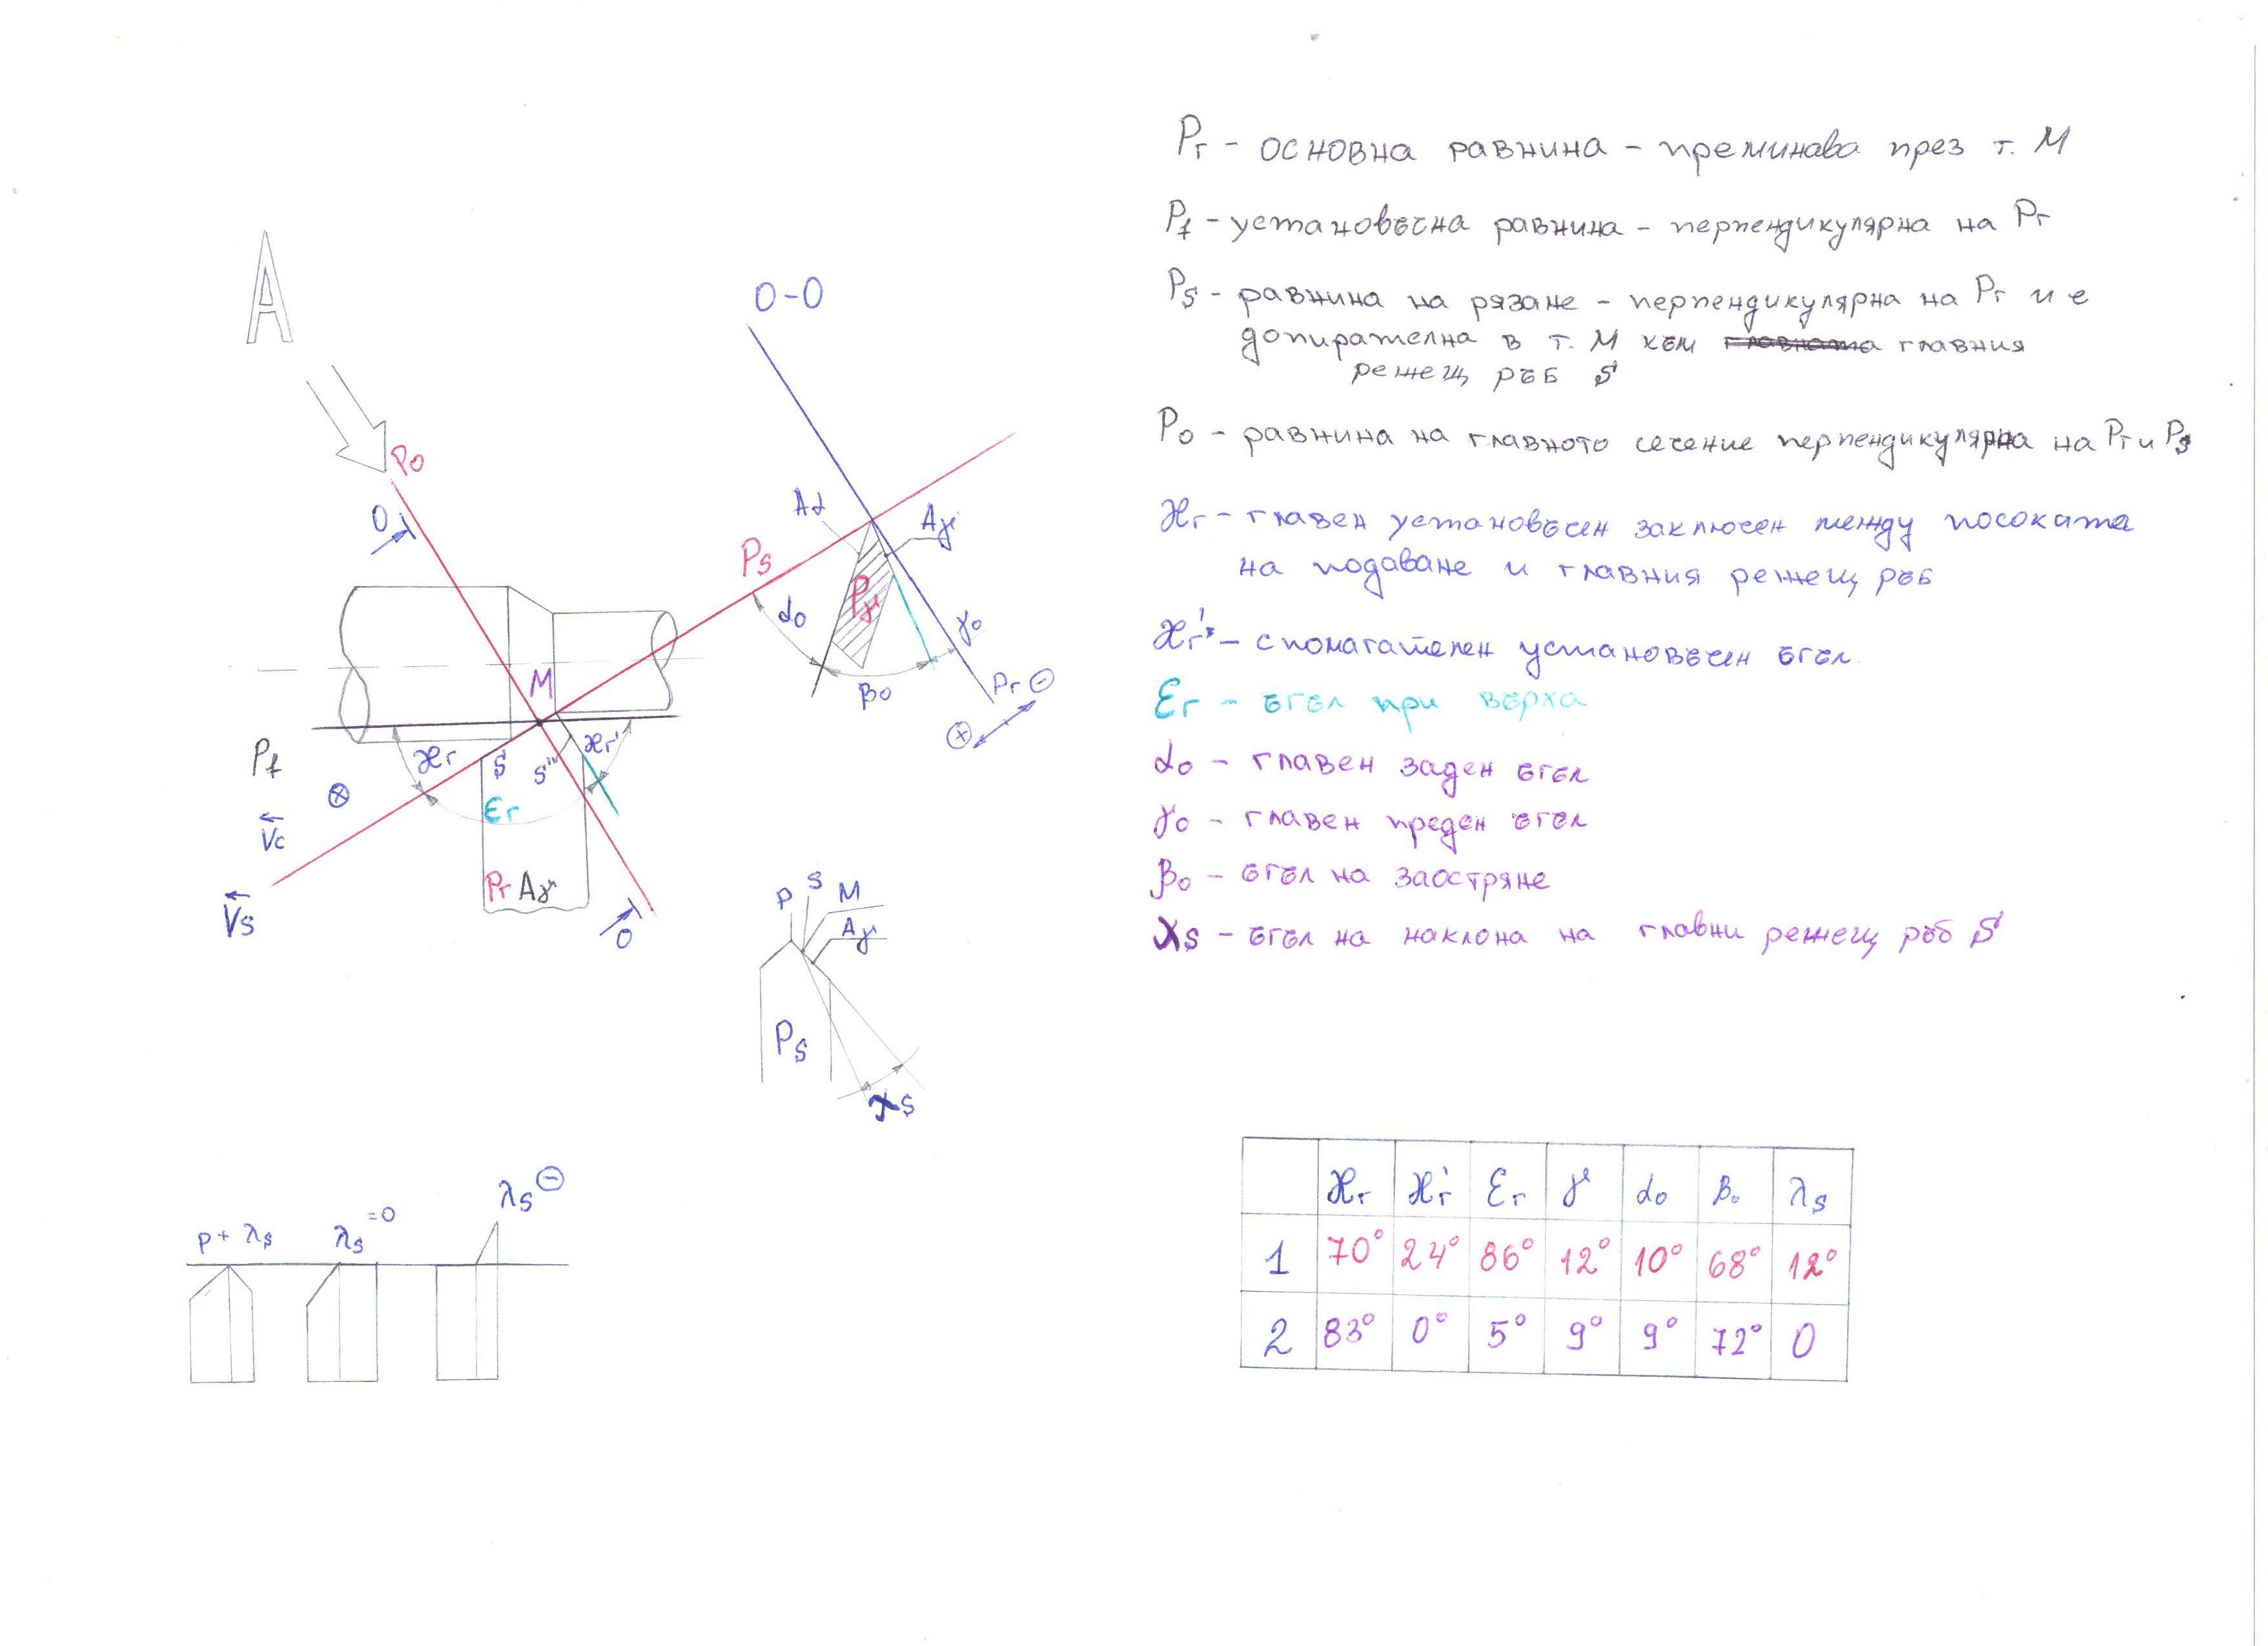 A
Po
O
O-O
Aα
Aγ
Ps
Pγ
αo
γo
βo
Pr ⊖
⊕
M
Pf
ϰr
S
S'
ϰr'
εr
⊗
Vc
Vs
Pr Aγ
O
P S M
Aγ
Ps
λs
P + λs
λs =0
λs ⊖
Pr - основна равнина - преминава през т. M
Pf - установъчна равнина - перпендикулярна на Pr
Ps - равнина на рязане - перпендикулярна на Pr и е
допирателна в т. M към главната главния
режещ ръб S
Po - равнина на главното сечение перпендикулярна на Pr и Ps
ϰr - главен установъчен заключен между посоката
на подаване и главния режещ ръб
ϰr' - спомагателен установъчен ъгъл
εr - ъгъл при върха
αo - главен заден ъгъл
γo - главен преден ъгъл
βo - ъгъл на заостряне
λs - ъгъл на наклона на главни режещ ръб S
ϰr ϰr' εr γ αo βo λs
1 70° 24° 86° 12° 10° 68° 12°
2 83° 0° 5° 9° 9° 72° 0